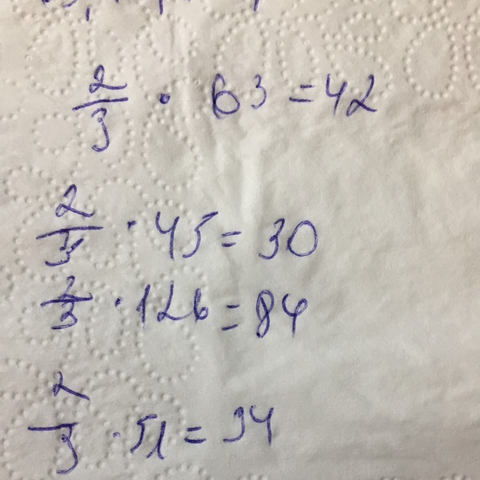 2/3 · 63 = 42
2/3 · 45 = 30
2/3 · 126 = 84
2/3 · 51 = 34